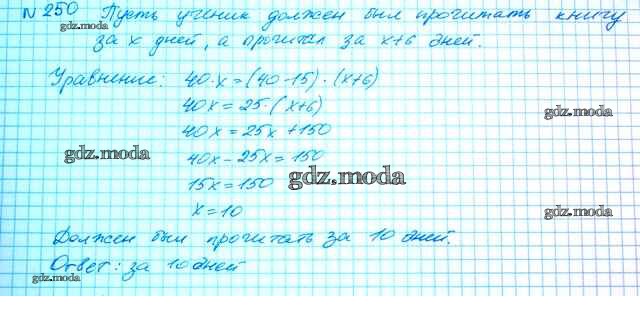 № 250 Пусть ученик должен был прочитать книгу
за x дней, а прочитал за x+6 дней.
Уравнение: 40·x=(40-15)·(x+6)
40x=25·(x+6)
gdz.moda
40x=25x+150
gdz.moda
40x-25x=150
15x=150
gdz.moda
x=10
gdz.moda
Должен был прочитать за 10 дней.
Ответ: за 10 дней
gdz.moda